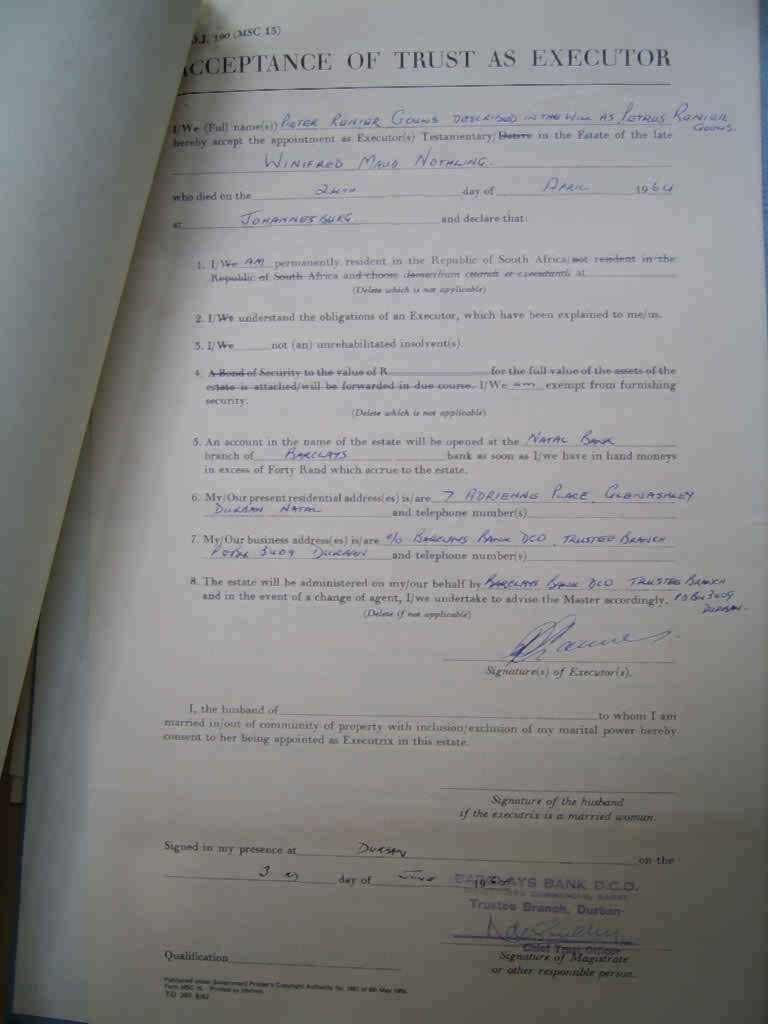 J. 190 (MSC 15)
ACCEPTANCE OF TRUST AS EXECUTOR
I/We (Full name(s)) PIETER RENIER GOUWS DESCRIBED IN THE WILL AS PETRUS RENIER
GOUWS.
hereby accept the appointment as Executor(s) Testamentary/Dative in the Estate of the late
WINIFRED MAUD NOTHLING.
who died on the 24TH day of APRIL 1964
at JOHANNESBURG. and declare that:
1. I/We AM permanently resident in the Republic of South Africa/not resident in the
Republic of South Africa and choose domicilium citandi et executandi at
(Delete which is not applicable)
2. I/We understand the obligations of an Executor, which have been explained to me/us.
3. I/We not (an) unrehabilitated insolvent(s).
4. A Bond of Security to the value of R for the full value of the assets of the
estate is attached/will be forwarded in due course. I/We am exempt from furnishing
security.
(Delete which is not applicable)
5. An account in the name of the estate will be opened at the NATAL BANK
branch of BARCLAYS bank as soon as I/we have in hand moneys
in excess of Forty Rand which accrue to the estate.
6. My/Our present residential address(es) is/are 7 ADRIENNE PLACE, GLENASHLEY
DURBAN NATAL and telephone number(s)
7. My/Our business address(es) is/are c/o BARCLAYS BANK DCO, TRUSTEE BRANCH
3409 DURBAN and telephone number(s)
8. The estate will be administered on my/our behalf by BARCLAYS BANK DCO TRUSTEE BRANCH
and in the event of a change of agent, I/we undertake to advise the Master accordingly. PO Box 3409
DURBAN.
(Delete if not applicable)
Signature(s) of Executor(s).
I, the husband of to whom I am
married in/out of community of property with inclusion/exclusion of my marital power hereby
consent to her being appointed as Executrix in this estate.
Signature of the husband
if the executrix is a married woman.
Signed in my presence at DURBAN on the
3 day of June 19
BARCLAYS BANK D.C.O.
Trustee Branch, Durban
Chief Trust Officer
Qualification
Signature of Magistrate
or other responsible person.